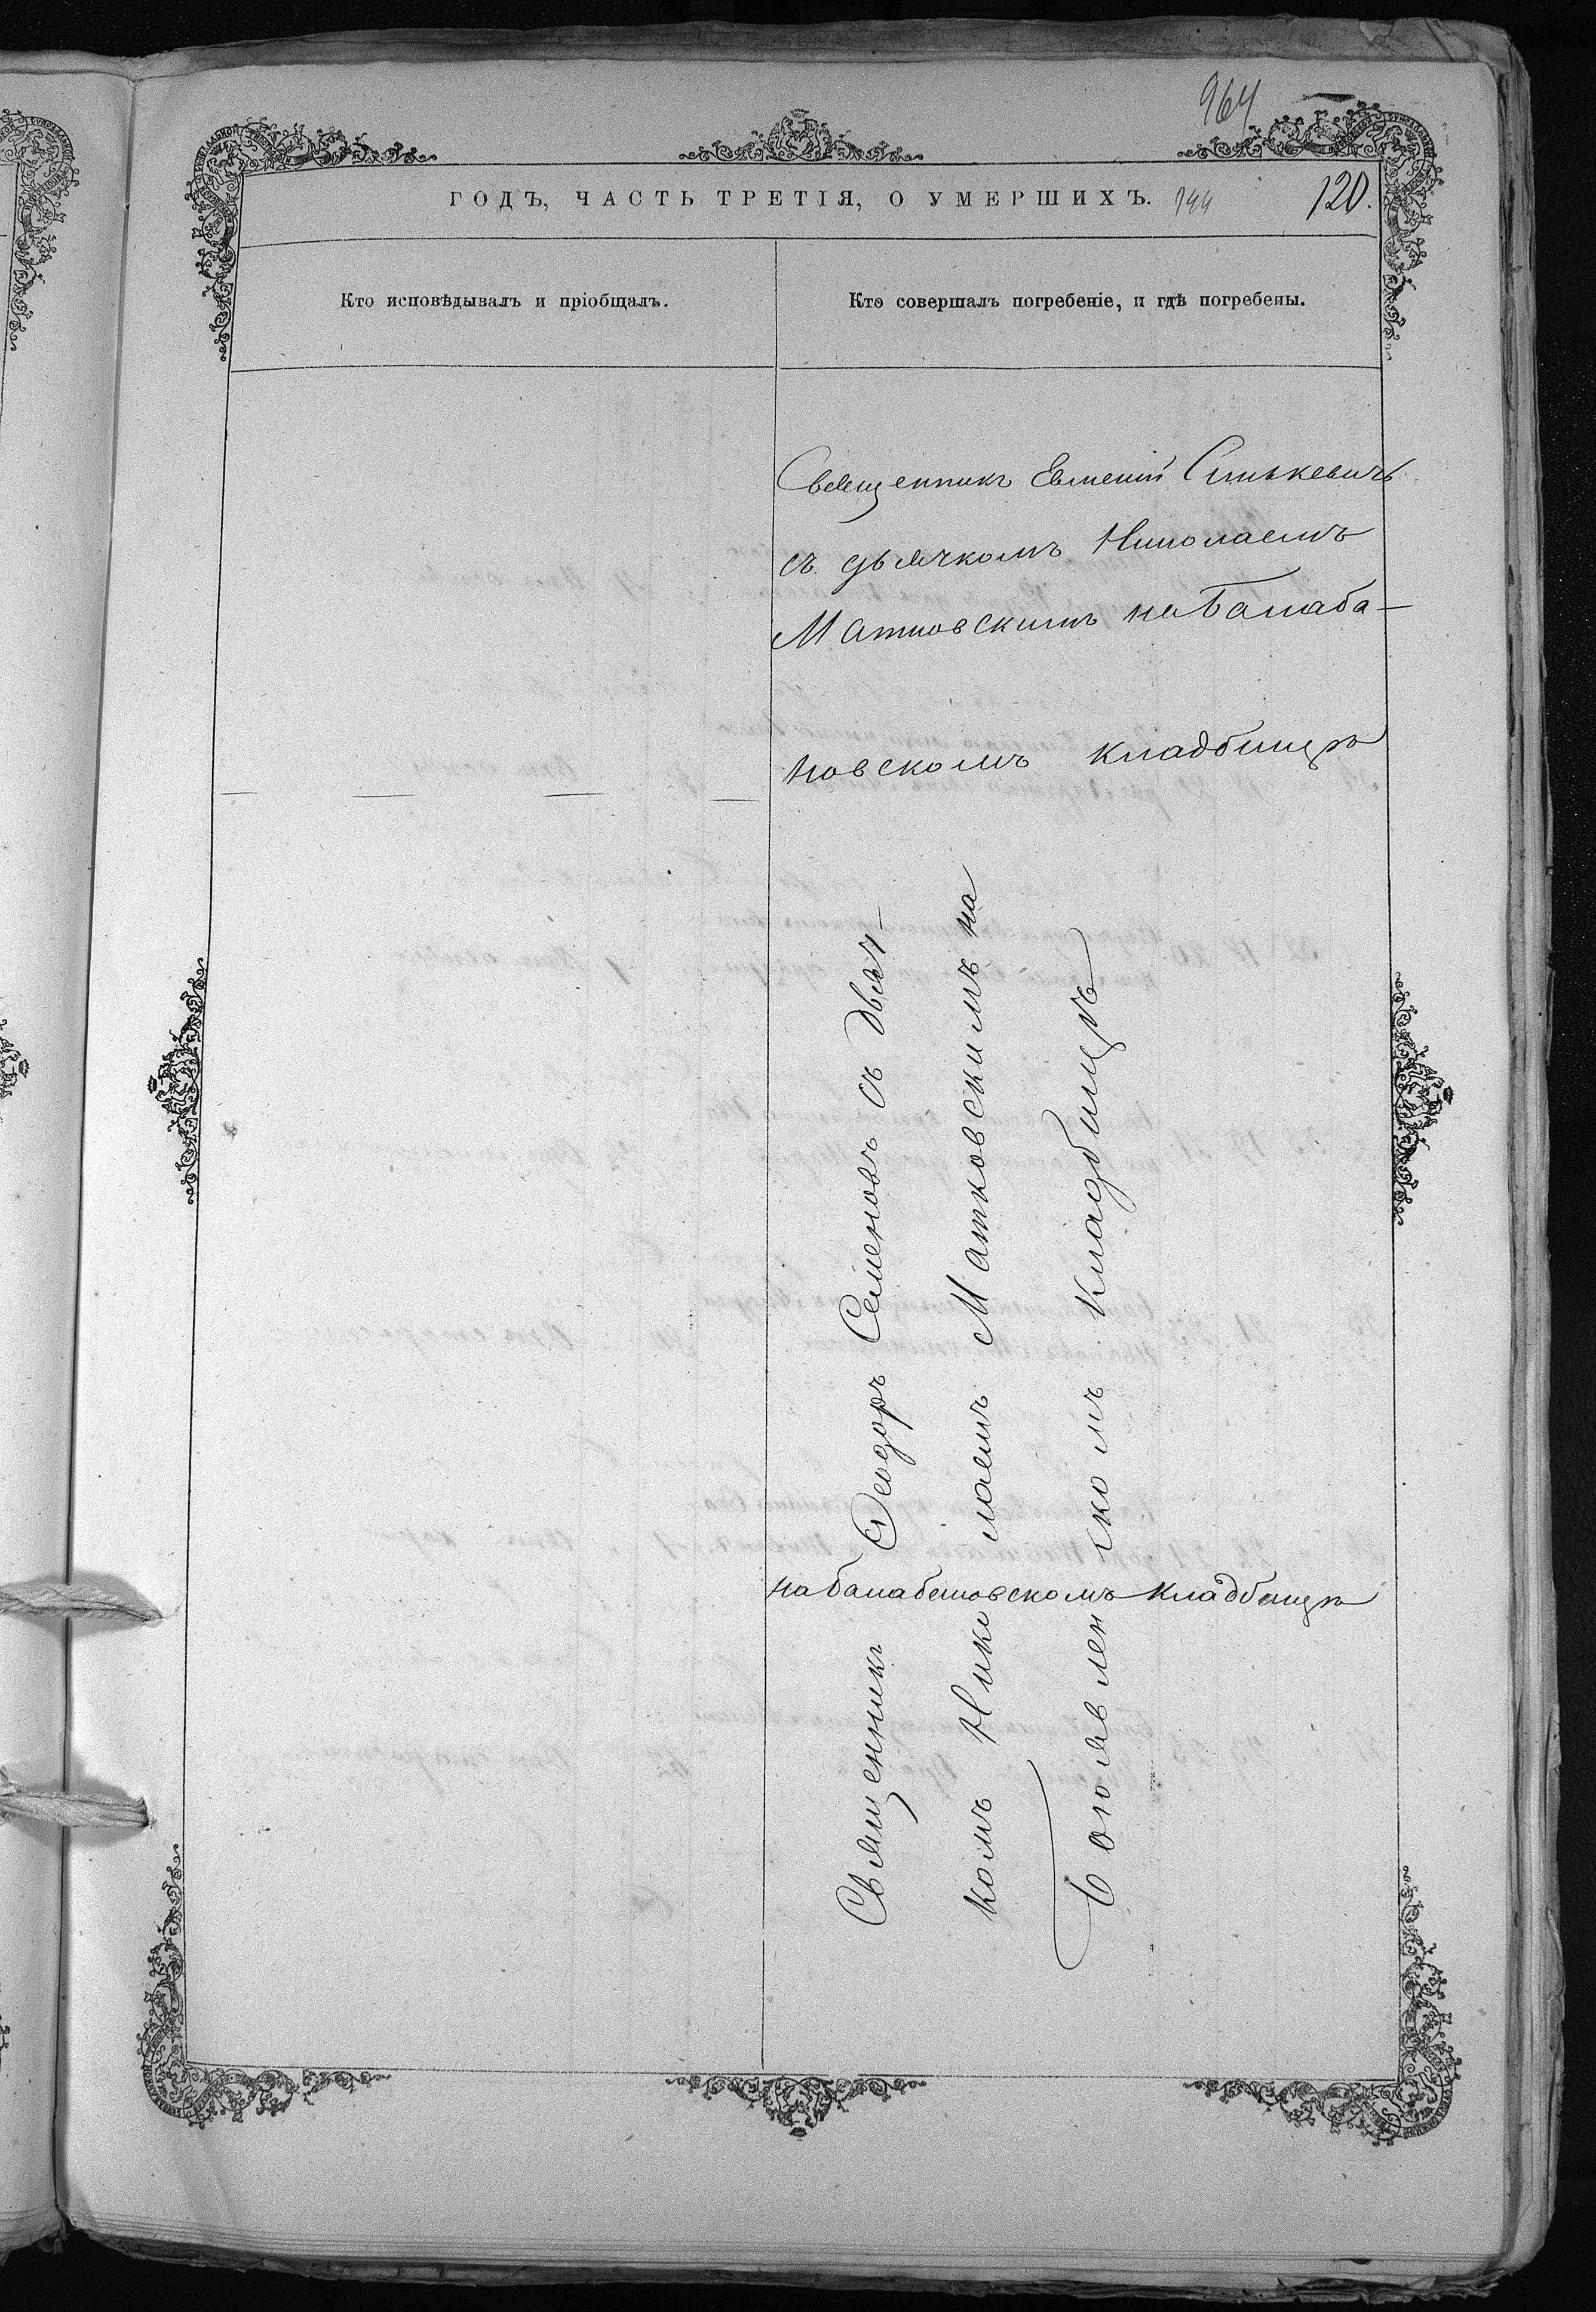 964
ГОДЪ, ЧАСТЬ ТРЕТІЯ, О УМЕРШИХЪ.
144
120.
Кто исповѣдывалъ и пріобщалъ.
Кто совершалъ погребеніе, и гдѣ погребены.
Священникъ Евменій Синькевичъ
съ дьячкомъ Николаемъ
Матковскимъ на Балаба-
новскомъ кладбищѣ
Священникъ Ѳеодоръ Семеновъ съ дьяч-
комъ Николаемъ Матковскимъ на
Богоявленскомъ кладбищѣ
на балабановскомъ кладбищѣ